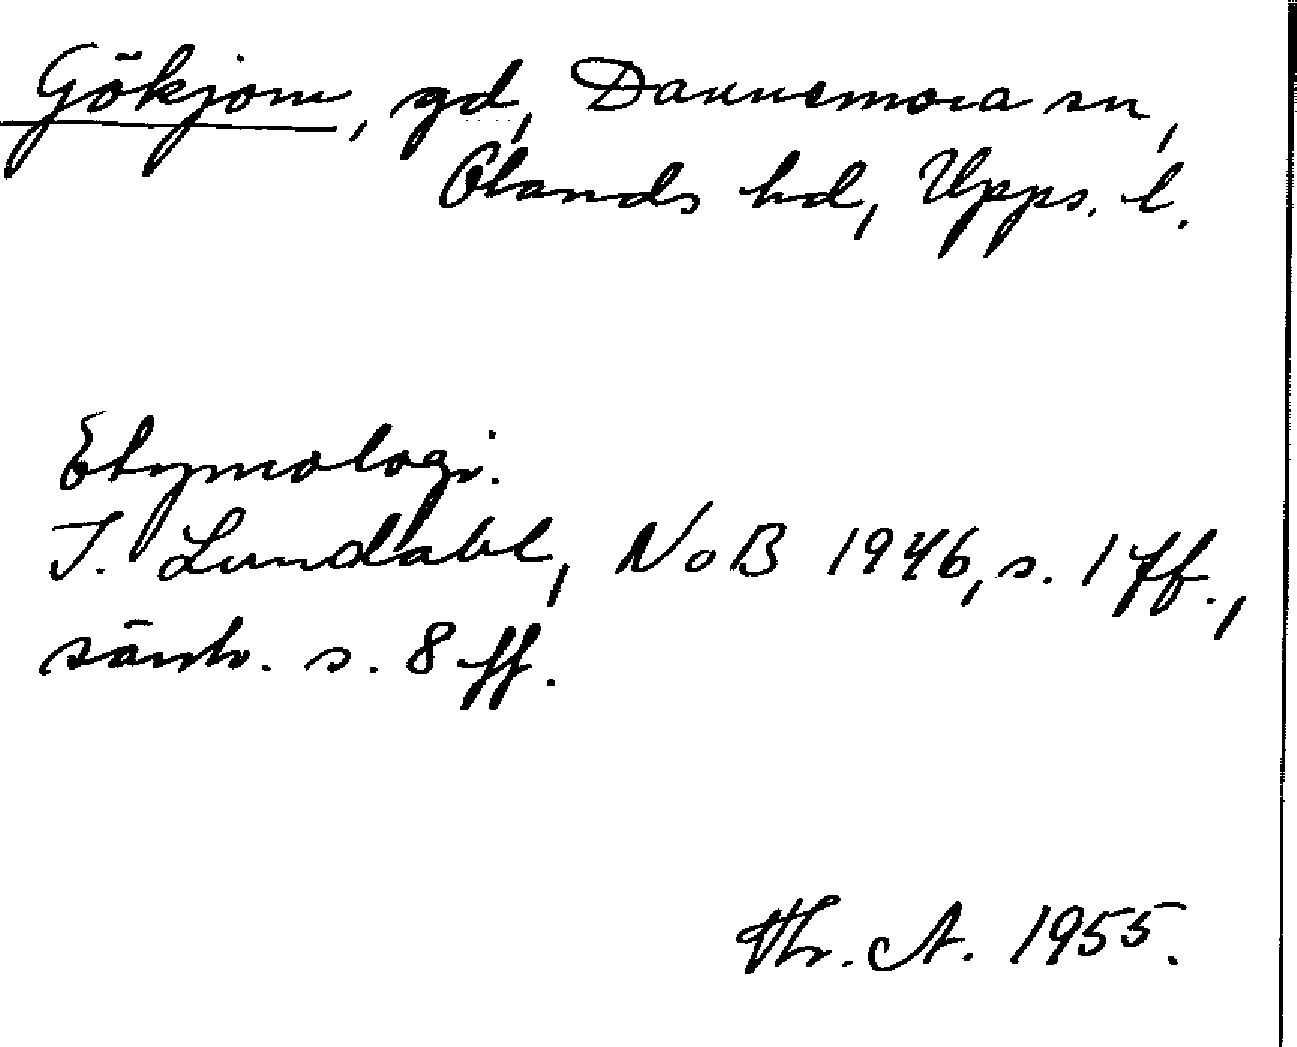 Gökjom, gd, Dannemora sn,
Olands hd, Upps. l.
Etymologi.
I. Lundahl, NoB 1946, s. 1 ff.,
särsk. s. 8 ff.
Hr. A. 1955.